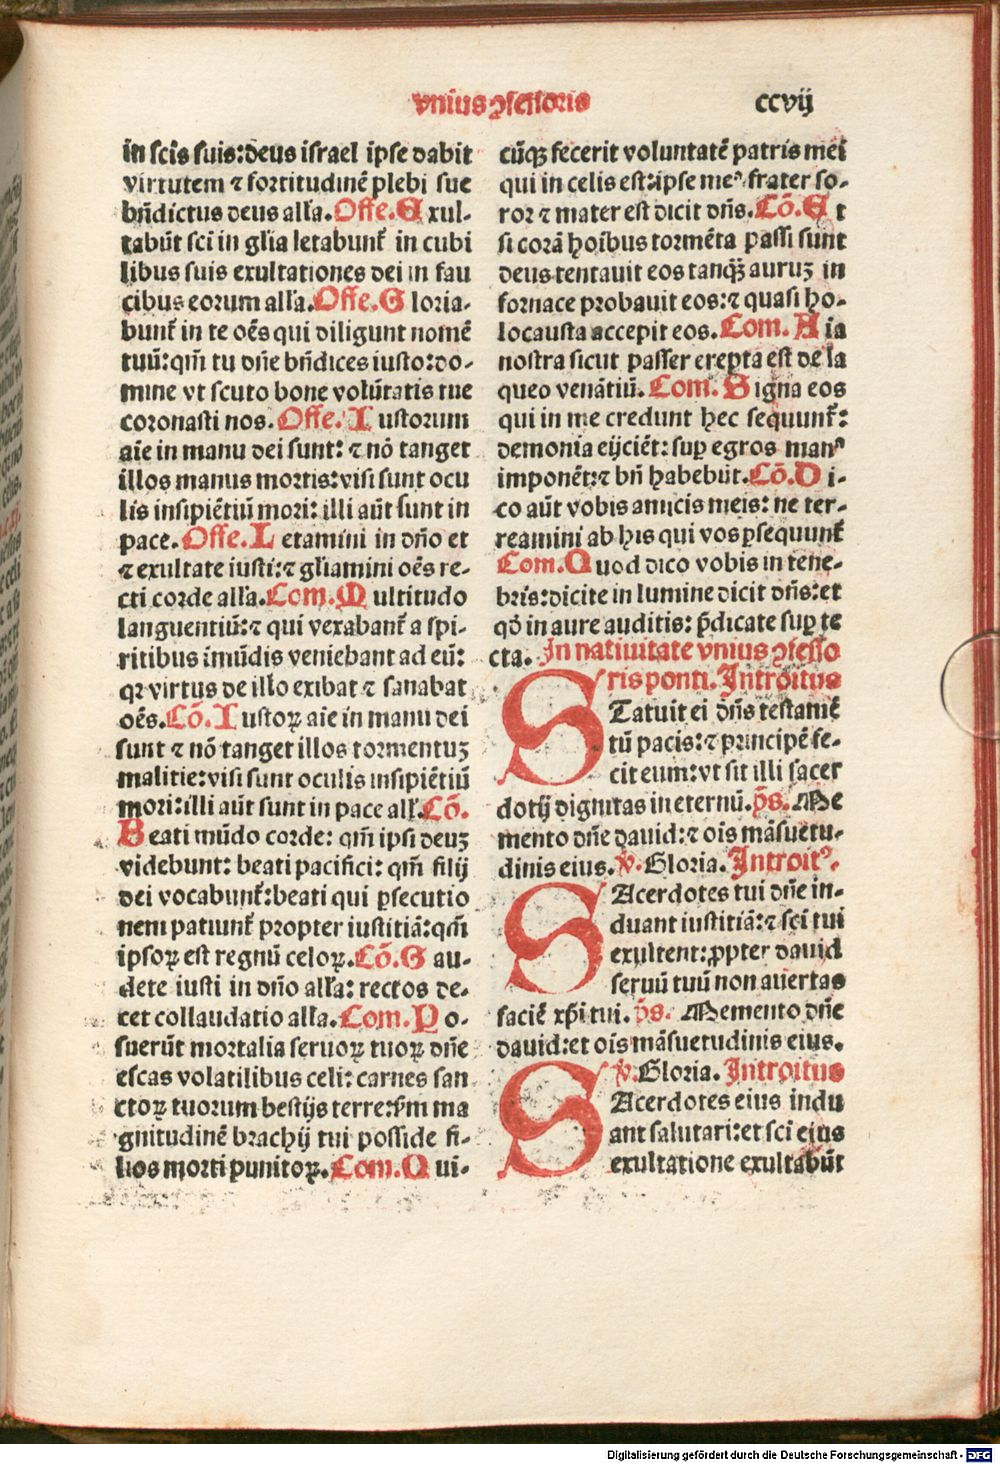 vnius ꝯfessoris
ccvij
in scīs suis:deus israel ipse dabit
virtutem ⁊ fortitudinē plebi sue
bn̄dictus deus allā. Offe. Exul-
tabūt sci in glīa letabunt᷑ in cubi
libus suis exultationes dei in fau
cibus eorum allā. Offe. Gloria-
bunt᷑ in te oēs qui diligunt nomē
tuū:qm̄ tu dn̄e bn̄dices iusto:do-
mine vt scuto bone volūtatis tue
coronasti nos. Offe. Iustorum
aīe in manu dei sunt: ⁊ nō tanget
illos manus mortis:visi sunt ocu
lis insipiētiū mori: illi aūt sunt in
pace. Offe. Letamini in dn̄o et
⁊ exultate iusti:⁊ gl̄iamini oēs re-
cti corde allā. Com. Multitudo
languentiū:⁊ qui vexabant᷑ a spi-
ritibus imūdis veniebant ad eū:
qꝛ virtus de illo exibat ⁊ sanabat
oēs. Cō. Iustoꝝ aīe in manu dei
sunt ⁊ nō tanget illos tormentuꝫ
malitie:visi sunt oculis insipiētiū
mori:illi aūt sunt in pace all̄. Cō.
Beati mūdo corde: qm̄ ipsi deuꝫ
videbunt: beati pacifici: qm̄ filij
dei vocabunt᷑:beati qui ꝑsecutio
nem patiunt᷑ propter iustitiā:qm̄
ipsoꝝ est regnū celoꝝ. Cō. Gau-
dete iusti in dn̄o allā: rectos de-
cet collaudatio allā. Com. Po-
suerūt mortalia seruoꝝ tuoꝝ dn̄e
escas volatilibus celi: carnes san
ctoꝝ tuorum bestijs terre:ẜm ma
gnitudinē brachij tui posside fi-
lios morti punitoꝝ. Com. Qui-
cūqꝫ fecerit voluntatē patris mei
qui in celis est:ipse meꝰ frater so-
ror ⁊ mater est dicit dn̄s. Cō. Et
si corā hoībus tormēta passi sunt
deus tentauit eos tanqꝫ̄ auruꝫ in
fornace probauit eos:⁊ quasi ho-
locausta accepit eos. Com. Aīa
nostra sicut passer erepta est de la
queo venātiū. Com. Signa eos
qui in me credunt hec sequunt᷑:
demonia eijciēt: suꝑ egros manꝰ
imponēt:⁊ bn̄ habebūt. Cō. Di-
co aūt vobis amicis meis: ne ter-
reamini ab his qui vos ꝑsequunt᷑
Com. Quod dico vobis in tene-
bris:dicite in lumine dicit dn̄s:et
qd̄ in aure auditis: p̄dicate suꝑ te
cta. In natiuitate vnius ꝯfesso
ris ponti. Introitus
STatuit ei dn̄s testamē
tū pacis:⁊ principē fe-
cit eum:vt sit illi sacer
dotij dignitas in eternū. p̄s. Me
mento dn̄e dauid:⁊ oīs māsuetu-
dinis eius. ℣. Gloria. Introitꝰ.
SAcerdotes tui dn̄e in-
duant iustitiā:⁊ sci tui
exultent:ꝓpter dauid
seruū tuū non auertas
faciē xp̄i tui. p̄s. Memento dn̄e
dauid:et oīs māsuetudinis eius.
℣. Gloria. Introitus
SAcerdotes eius indu
ant salutari:et sci eius
exultatione exultabūt
Digitalisierung gefördert durch die Deutsche Forschungsgemeinschaft - DFG